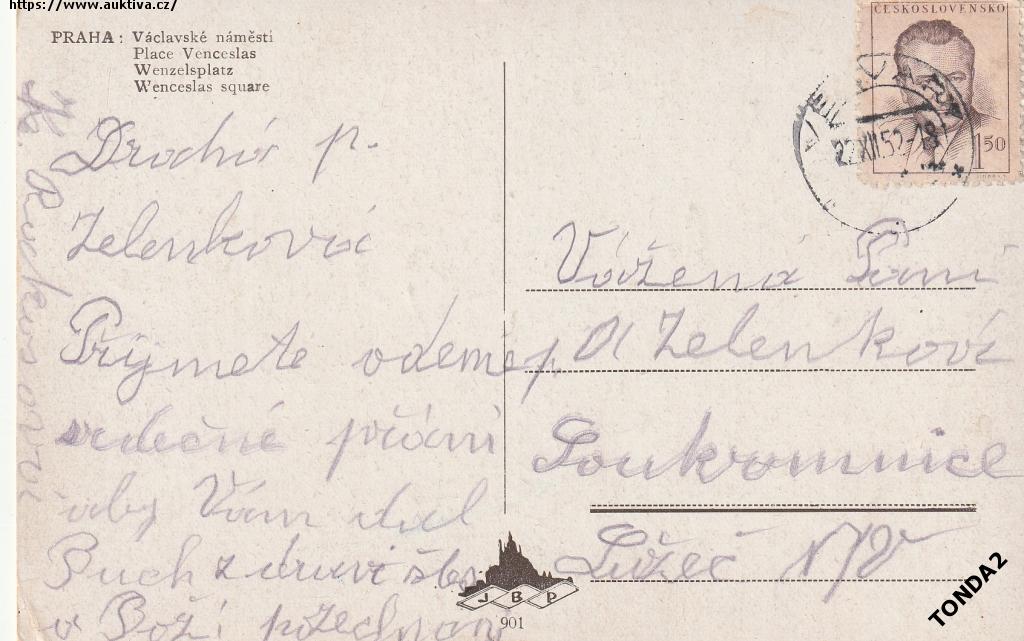 https://www.auktiva.cz/
PRAHA: Václavské náměstí
Place Venceslas
Wenzelsplatz
Wenceslas square
Drahá p.
Zelenková
Prijmete odeme p.
srdečné přání
aby Vám dal
Buch zdraví
v Boží požehnan
ČESKOSLOVENSKO
1.50
22.XII.52-18
Vážená Paní
A Zelenková
Soukromnice
Lužec N/V
JBP
901
TONDA2